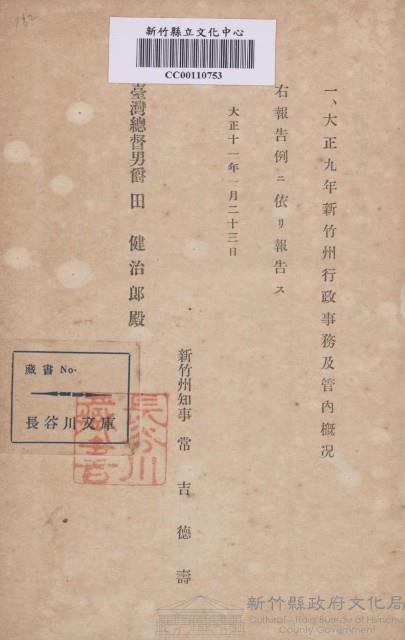 162
新竹縣立文化中心
CC00110753
一、大正九年新竹州行政事務及管內概況
右報告例ニ依リ報告ス
大正十一年一月二十三日
新竹州知事 常吉德壽
臺灣總督男爵 田 健治郎殿
藏書 No.
長谷川文庫
長谷川
藏書
新竹縣政府文化局
Cultural Affairs Bureau of Hsinchu
County Government